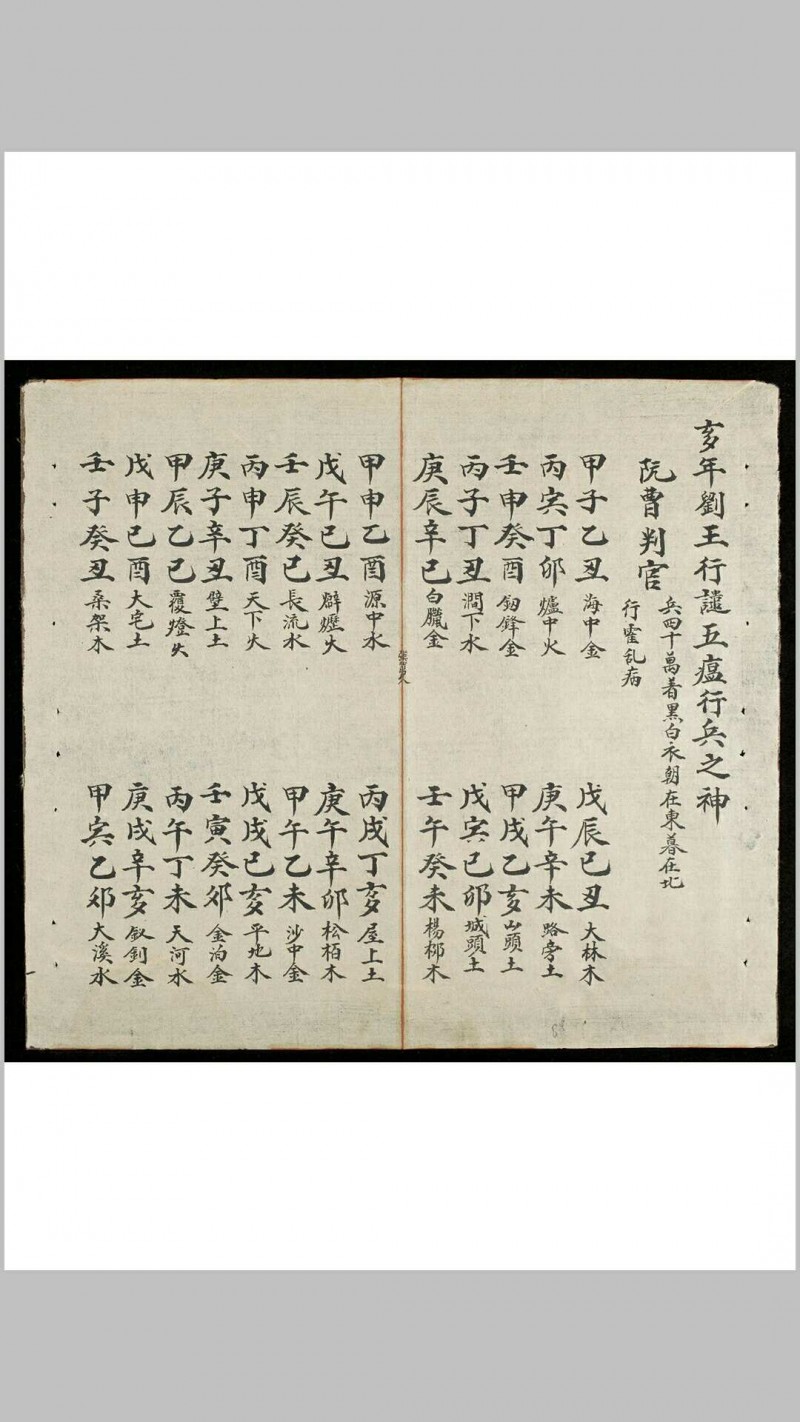 亥年劉王行譴五瘟行兵之神
阮曹判官
兵四十萬着黑白衣朝在東暮在北
行霍乱病
甲子乙丑海中金
戊辰己丑大林木
丙寅丁卯爐中火
庚午辛未路旁土
壬申癸酉釰鋒金
甲戌乙亥山頭土
丙子丁丑澗下水
戊寅己卯城頭土
庚辰辛巳白臘金
壬午癸未楊柳木
甲申乙酉源中水
丙戌丁亥屋上土
戊午己丑霹靂火
庚午辛卯松栢木
壬辰癸巳長流水
甲午乙未沙中金
丙申丁酉天下火
戊戌己亥平地木
庚子辛丑壁上土
壬寅癸卯金泊金
甲辰乙巳覆燈火
丙午丁未天河水
戊申己酉大宅土
庚戌辛亥釵釧金
壬子癸丑桑架木
甲寅乙卯大溪水